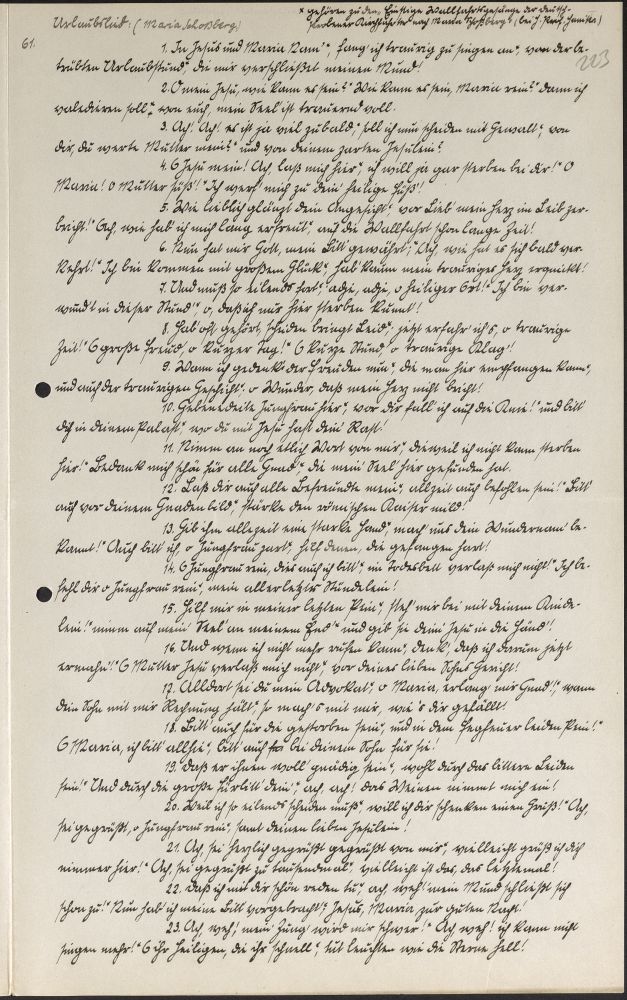 Urlaubslied. (Maria Schoßberg)
* gehören zu den „Einstige Wallfahrtsgesänge der deutsch-
Probener Kirchfahrten nach Maria Schoßberg“ (bei J. Hanika)
61.
223
1. In Jesus und Maria Nam', fang' ich traurig zu singen an, von der be-
trübten Urlaubstund', die mir verschließet meinen Mund!
2. O mein Jesu, wie kann es sein? Wie kann es sein, Maria rein? Dann ich
valedieren soll, von euch, mein Seel' ist trauernd voll.
3. Ach! Ach! es ist ja viel zu bald, soll ich nun scheiden mit Gewalt, von
dir, du werte Mutter mein? und von deinem zarten Jesulein?
4. O Jesu mein! Ach, laß mich hier, ich will ja gar sterben bei dir! O
Maria! O Mutter süß! Ich werf' mich zu dein' heilige Füß'!
5. Wie lieblich glänzt dein Angesicht, vor Lieb' mein Herz im Leib zer-
bricht! Ach, wie hab' ich mich lang' erfreut, auf die Wallfahrt schon lange Zeit!
6. Nun hat mir Gott, mein Bitt' gewährt, Ach, wie hat es sich bald ver-
kehrt! Ich bin kommen mit großem Glück, hab' kaum mein trauriges Herz erquickt!
7. Und muß so eilends fort, adje, adje, o heiliger Ort! Ich bin ver-
wund't in dieser Stund', o, daß ich nur hier sterben kunnt'!
8. Hab' oft gehört, scheiden bringt Leid, jetzt erfahr' ich's, o traurige
Zeit! O große Freud', o kurzer Tag! O kurze Stund', o traurige Klag'!
9. Wann ich gedenk' der Freuden nun, die man hier empfangen kann,
und auch der traurigen Geschicht', o Wunder, daß mein Herz nicht bricht!
10. Gebenedeite Jungfrau hier, vor dir fall' ich auf die Knie! und bitt'
dich in deinem Palast, wo du mit Jesu hast dein' Rast.
11. Nimm an noch etlich Wort von mir, dieweil ich nicht kann sterben
hier! Bedank' mich schön für alle Gnad', die mein' Seel' hier gefunden hat.
12. Laß dir auch alle Befreundte mein, allzeit auch befohlen sein! Bitt'
auch vor deinem Gnadenbild, stärke den römischen Kaiser mild!
13. Gib ihm allezeit eine starke Hand, mach' uns dein Wundernam' be-
kannt! Auch bitt' ich, o Jungfrau zart, hilf denen, die gefangen hart!
14. O Jungfrau rein, dies auch ich bitt', im Todesbett verlaß mich nicht! Ich be-
fehl' dir o Jungfrau rein, mein allerletztes Stündelein!
15. Hilf mir in meiner letzten Pein, steh' mir bei mit deinem Kinde-
lein! nimm auch mein' Seel' an meinem End' und gib sie dein' Jesu in die Händ'!
16. Und wenn ich nicht mehr rufen kann, denk', daß ich darum jetzt
ermahn'! O Mutter Jesu verlaß mich nicht, vor deines lieben Sohns Gericht!
17. Alldort sei du mein Advokat, o Maria, erlang' mir Gnad'!, wann
dein Sohn mit mir Rechnung hält, so mach's mit mir, wie's dir gefällt!
18. Bitt' auch für die gestorben sein, und in dem Fegfeuer leiden Pein!
O Maria, ich bitt' allhie, bitt' auch bei deinem Sohn für sie!
19. Daß er ihnen woll' gnädig sein, wohl durch das bittere Leiden
sein! Und durch die große Fürbitt' dein, ach, ach! das Weinen nimmt mich ein!
20. Weil ich so eilends scheiden muß, will ich dir schenken einen Gruß! Ach,
sei gegrüßt, o Jungfrau rein, samt deinen lieben Jesulein!
21. Ach, sei herzlich gegrüßt gegrüßt von mir, vielleicht grüß' ich dich
nimmer hier! Ach, sei gegrüßt zu tausendmal, vielleicht ist das, das letztemal!
22. Daß ich mit dir schön reden tu', ach, weh! mein Mund schließt sich
schon zu! Nun hab' ich meine Bitt' vorgebracht, Jesus, Maria, zur guten Nacht!
23. Ach, weh! mein' Zung' wird mir schwer! Ach weh! ich kann nicht
singen mehr! O ihr Heiligen, die ihr schnell, tut leuchten wie die Sterne hell!